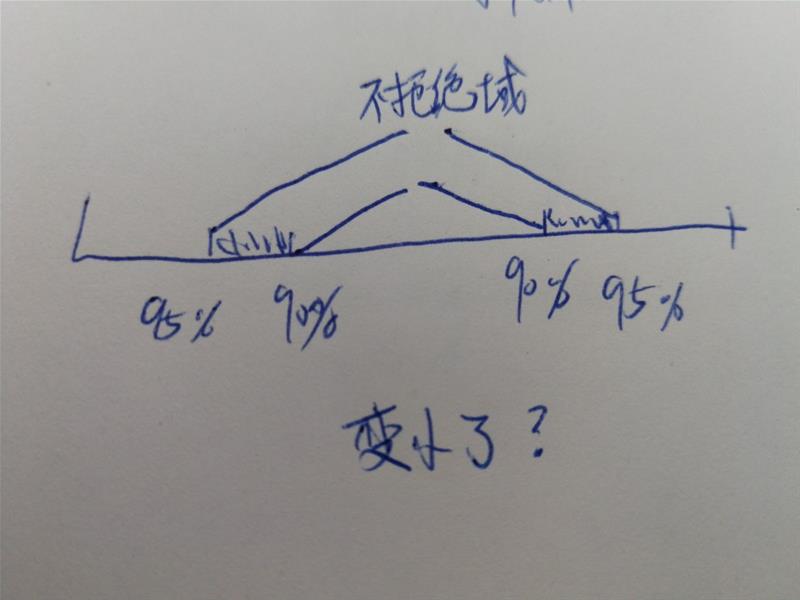 不拒绝域
95% 90% 90% 95%
变小了？